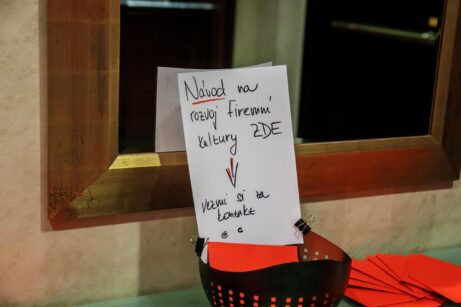 Návod na
rozvoj firemní
kultury ZDE
vezmi si za
kontakt